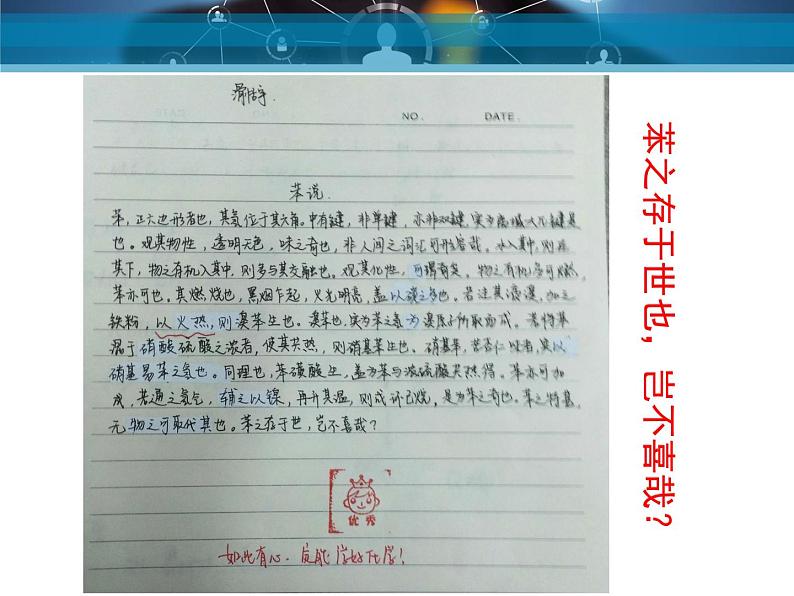 NO. DATE.
苯说.
苯,正六边形者也,其氢位于其六角。中有键,非单键,亦非双键,实为离域大π键是
也。观其物性,透明无色,味之奇也,非人间之词汇可形容哉。水入其中,则在
其下,物之有机入其中,则多与其交融也。观其化性,可谓奇矣。物之有机多可燃,
苯亦可也。其燃烧也,黑烟乍起,火光明亮,盖以碳之多也。若进其液溴,加之
铁粉,以火热,则溴苯生也。溴苯也,实为苯之氢为溴原子所取而成。若将苯
混于硝酸硫酸之浓者,使其共热,则硝基苯生也。硝基苯,苦杏仁味者,其以
硝基易苯之氢也。同理也,苯磺酸生,盖为苯与浓硫酸共热得。苯亦可加
成,若通之氢气,辅之以镍,再升其温,则成环己烷,是为苯之奇也。苯之特甚,
无物之可取代其也。苯之存于世,岂不喜哉?
优秀
如此有心,定能学好化学!
苯之存于世也,岂不喜哉?